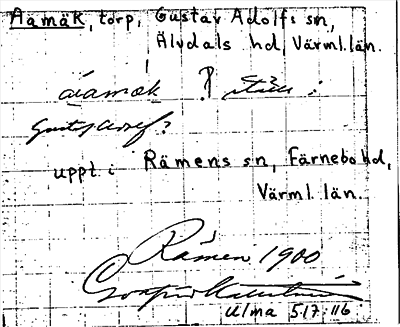 Aamäk, torp, Gustav Adolfs sn,
Älvdals hd, Värml. län.
áiamäk ?
Gustaf Adolf?
uppt. i Rämens sn, Färnebo hd,
Värml. län.
Rämen 1900
Ulma 5:17:116